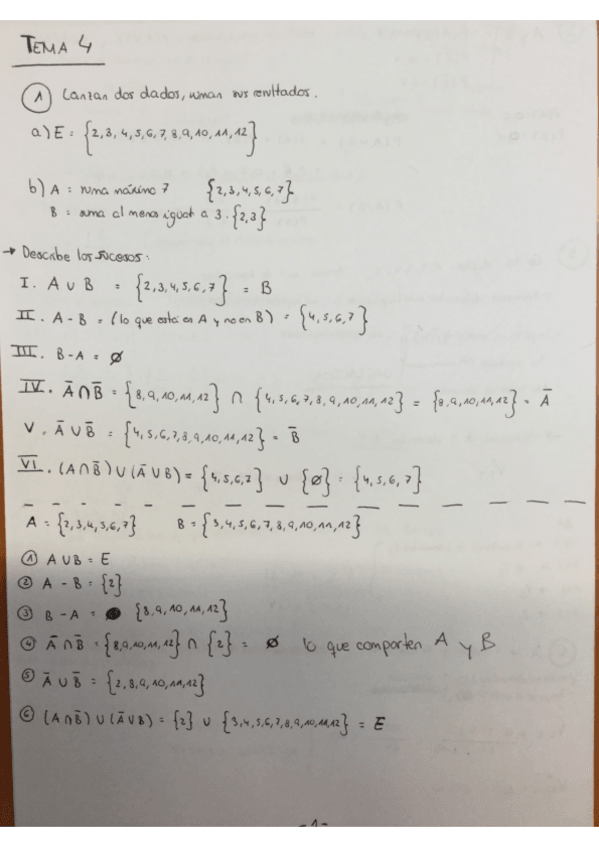 TEMA 4
① Lanzan dos dados, suman sus resultados.
a) E = {2,3,4,5,6,7,8,9,10,11,12}
b) A = suma máximo 7 {2,3,4,5,6,7}
B = suma al menos igual a 3. {2,3}
→ Describe los sucesos:
I. A ∪ B = {2,3,4,5,6,7} = B
II. A - B = (lo que está en A y no en B) = {4,5,6,7}
III. B - A = ∅
IV. Ā ∩ B̄ = {8,9,10,11,12} ∩ {4,5,6,7,8,9,10,11,12} = {8,9,10,11,12} = Ā
V. Ā ∪ B̄ = {4,5,6,7,8,9,10,11,12} = B̄
VI. (A ∩ B̄) ∪ (Ā ∪ B) = {4,5,6,7} ∪ {∅} = {4,5,6,7}
A = {2,3,4,5,6,7} B = {3,4,5,6,7,8,9,10,11,12}
① A ∪ B = E
② A - B = {2}
③ B - A = {8,9,10,11,12}
④ Ā ∩ B̄ = {8,9,10,11,12} ∩ {2} = ∅ lo que comparten A y B
⑤ Ā ∪ B̄ = {2,8,9,10,11,12}
⑥ (A ∩ B̄) ∪ (Ā ∪ B) = {2} ∪ {3,4,5,6,7,8,9,10,11,12} = E
-1-